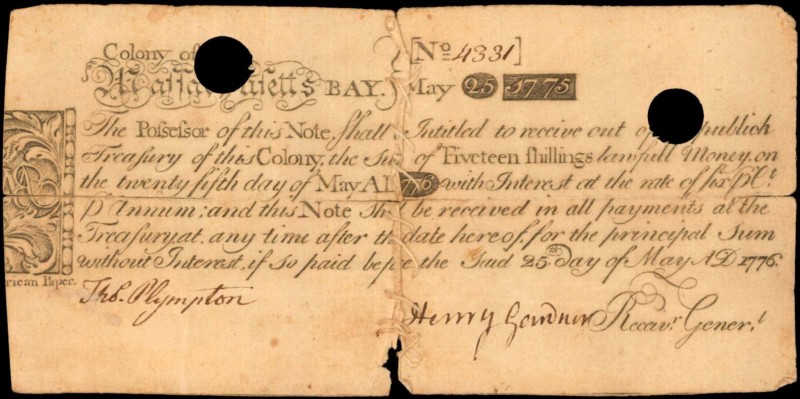 Colony of [No 4331]
Massachusetts BAY. May 25 1775
The Possessor of this Note Shall Intitled to receive out of publick
Treasury of this Colony, the Su of Fiveteen shillings lawfull Money, on
the twenty fifth day of May AD 1776 with Interest at the rate of six P Ct.
P Annum; and this Note Sh be received in all payments at the
Treasury, at any time after the date here of, for the principal Sum
without Interest, if so paid before the said 25th Day of May AD 1776.
rican Paper.
Thos. Plympton
Henry Gardner Receivr. Generl.